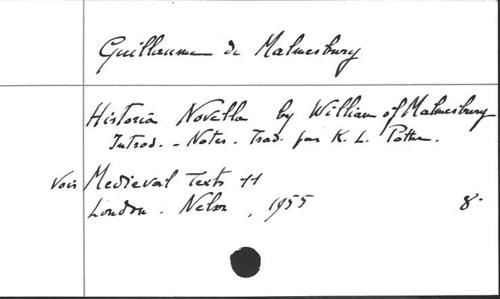 Guillaume de Malmesbury
Historia Novella by William of Malmesbury
Introd. - Notes. Trad. par K. L. Potter.
Voir Medieval Texts ++
London. Nelson, 1955 8°